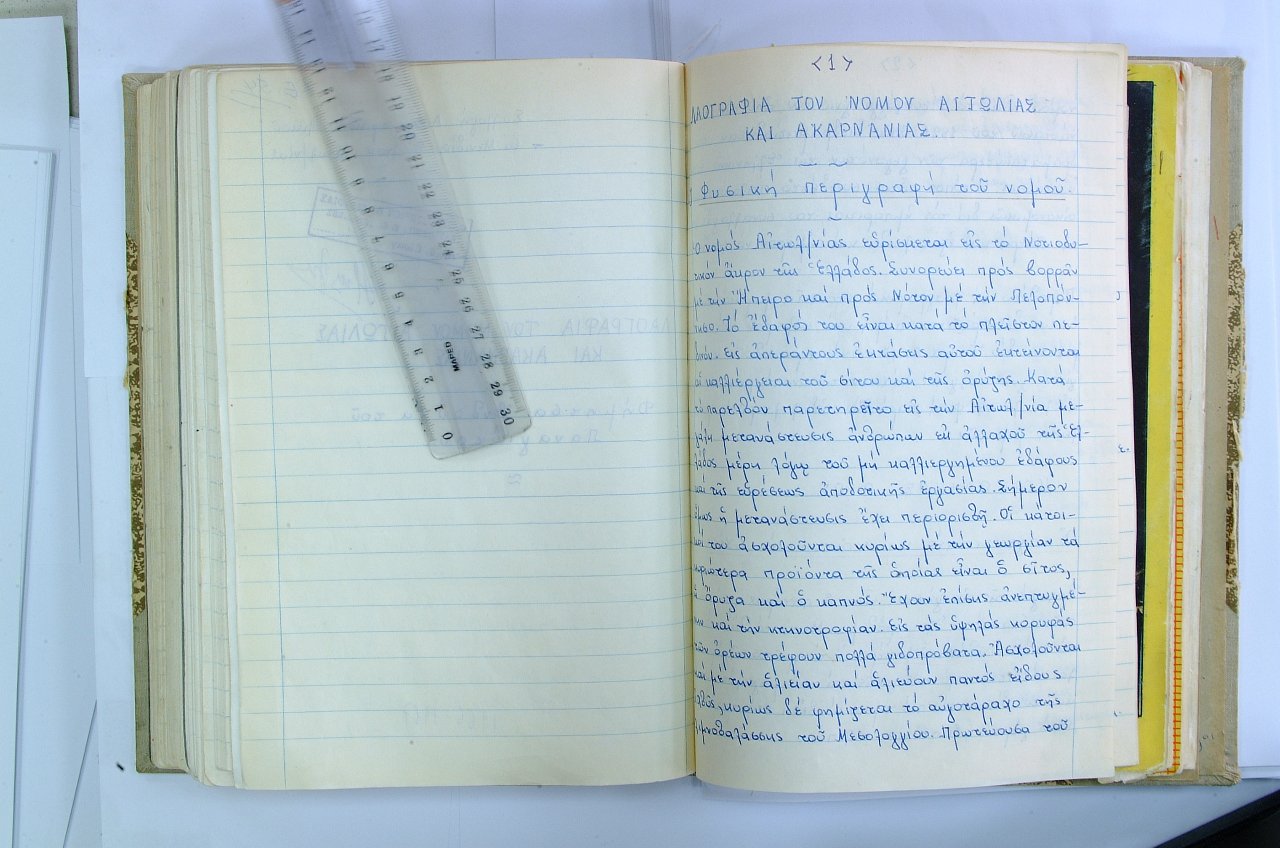 <1>
ΛΑΟΓΡΑΦΙΑ ΤΟΥ ΝΟΜΟΥ ΑΙΤΩΛΙΑΣ
ΚΑΙ ΑΚΑΡΝΑΝΙΑΣ.
Φυσική περιγραφή τοῦ νομοῦ.
Ὁ νομός Αἰτωλ/νίας εὑρίσκεται εἰς τό Νοτιοδυ-
τικόν ἄκρον τῆς Ἑλλάδος. Συνορεύει πρός βορρᾶν
μέ τήν Ἤπειρο καί πρός Νότον μέ τήν Πελοπόν-
νησο. Τό ἔδαφός του εἶναι κατά τό πλεῖστον πε-
δινόν. εἰς ἀπεράντους ἐκτάσεις αὐτοῦ ἐκτείνονται
αἱ καλλιέργειαι τοῦ σίτου καί τῆς ὀρύζης. Κατά
τό παρελθόν παρετηρεῖτο εἰς τήν Αἰτωλ/νία με-
γάλη μετανάστευσις ἀνθρώπων ἐξ ἀλλαχοῦ τῆς Ἑλ-
λάδος μέρη λόγῳ τοῦ μή καλλιεργημένου ἐδάφους
καί τῆς εὑρέσεως ἀποδοτικῆς ἐργασίας. Σήμερον
ὅμως ἡ μετανάστευσις ἔχει περιορισθῆ. Οἱ κάτοι-
κοί του ἀσχολοῦνται κυρίως μέ τήν γεωργίαν τά
κυριώτερα προϊόντα τῆς ὁποίας εἶναι ὁ σῖτος,
ἡ ὄρυζα καί ὁ καπνός. Ἔχουν ἐπίσης ἀνεπτυγμέ-
νη καί τήν κτηνοτροφίαν. εἰς τάς ὑψηλάς κορυφάς
τῶν ὀρέων τρέφουν πολλά γιδοπρόβατα. Ἀσχολοῦνται
καί μέ τήν ἁλιείαν καί ἁλιεύουν παντός εἴδους
ἰχθῦς, κυρίως δέ φημίζεται τό αὐγοτάραχο τῆς
λιμνοθαλάσσης τοῦ Μεσολογγίου. Πρωτεύουσα τοῦ